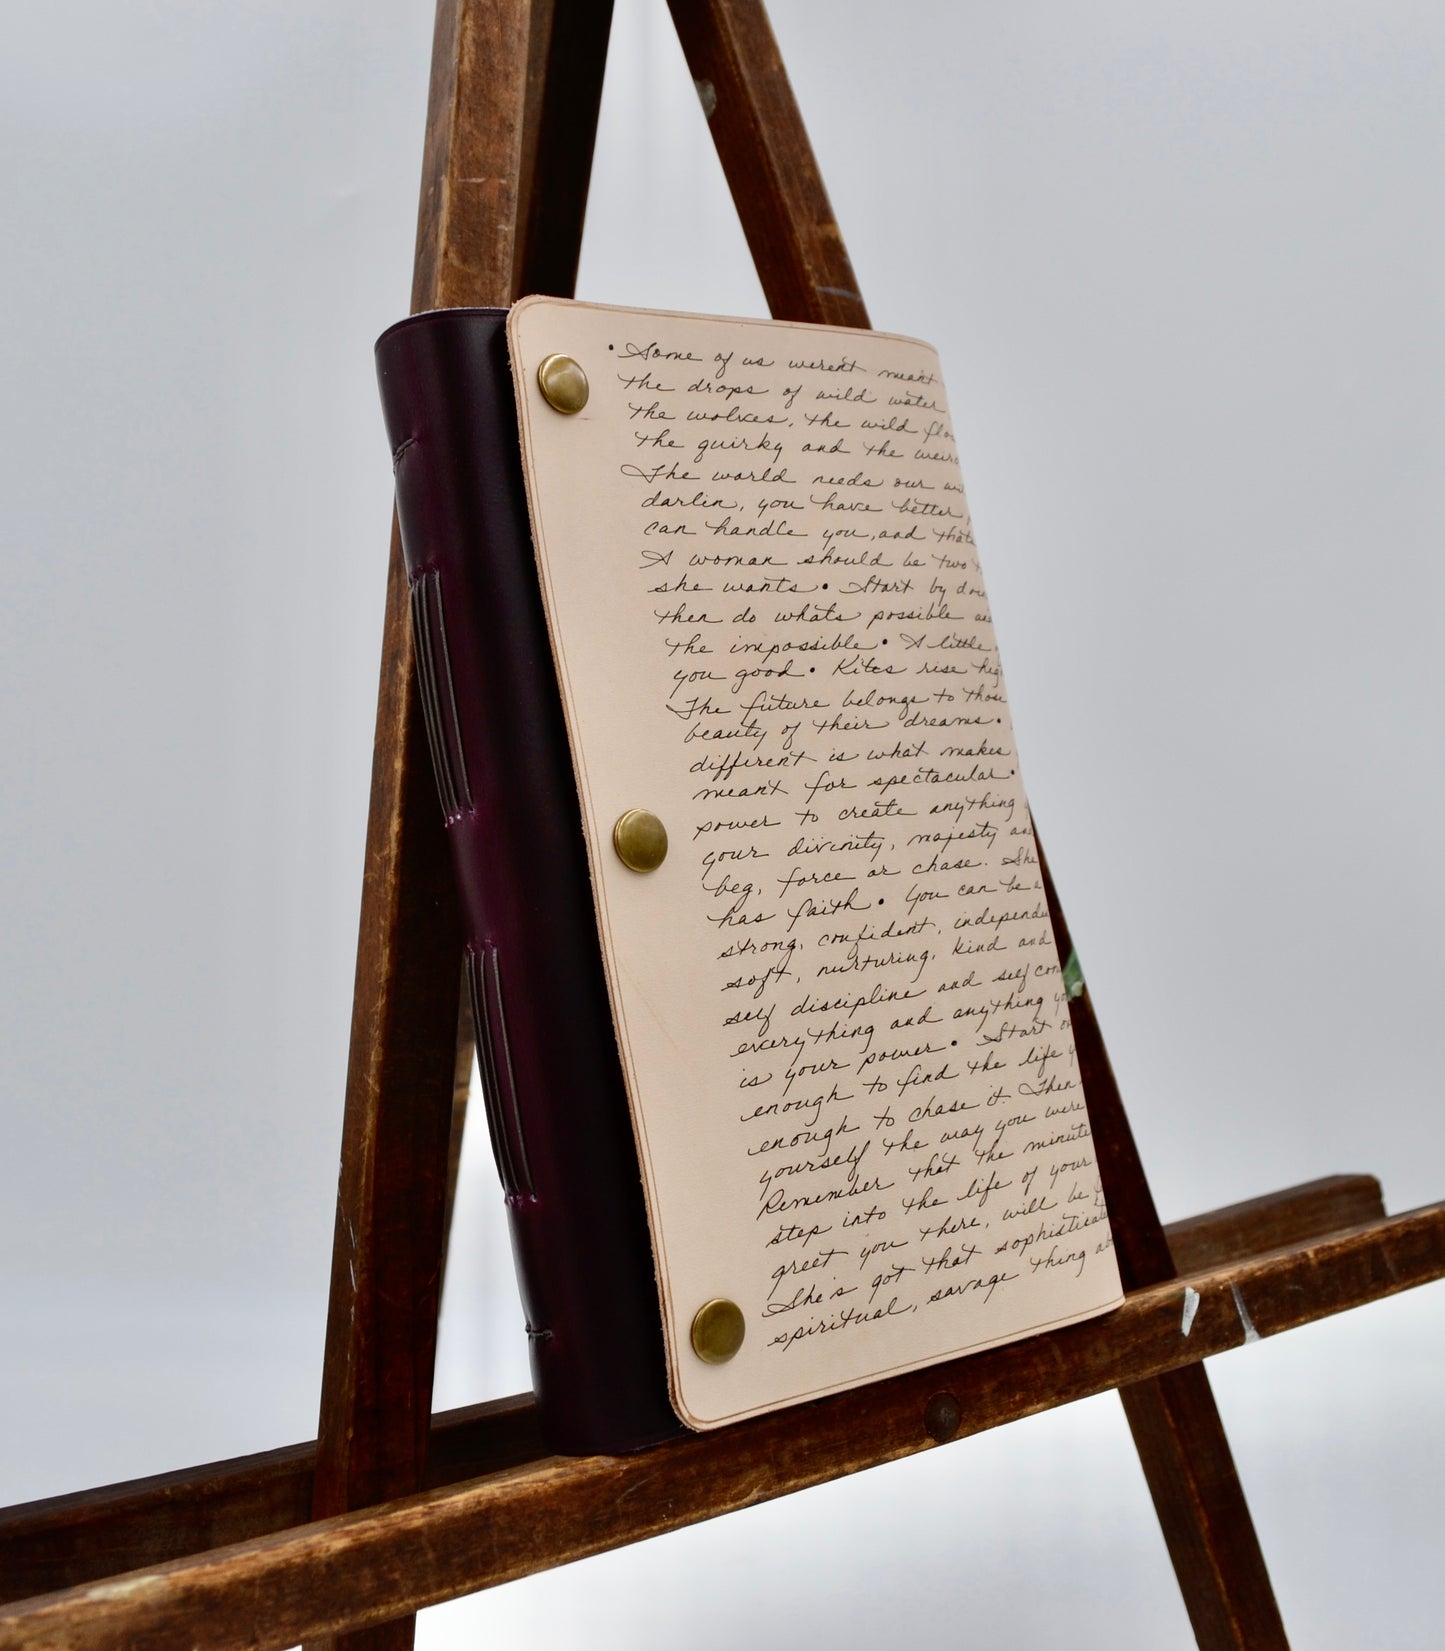 • Some of us weren't meant
the drops of wild water
the wolves, the wild
the quirky and the
The world needs our
darlin, you have better
can handle you, and thats
A woman should be two
she wants • Start by
then do whats possible
the impossible • A little
you good • Kites rise
The future belongs to those
beauty of their dreams •
different is what makes
meant for spectacular •
power to create anything
your divinity, majesty
beg, force or chase. She
has faith • You can be a
strong, confident,
soft, nurturing, kind and
self discipline and self
everything and anything
is your power • Start
enough to find the life
enough to chase it. Then
yourself the way you were
Remember that the minute
step into the life of your
greet you there, will be
She's got that
spiritual, savage thing